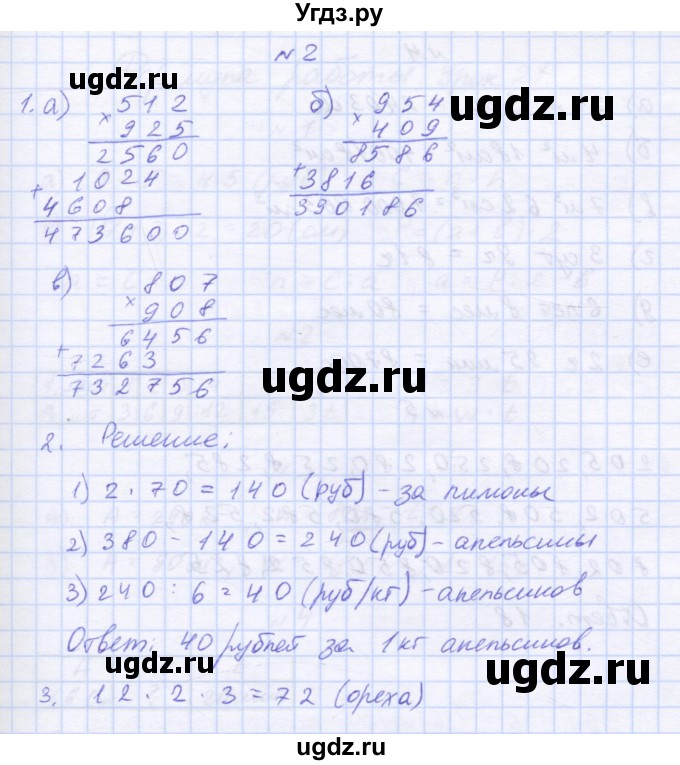 Угдз.ру
№2
1. а) 512
× 925
2560
+ 1024
4608
473600
б) 954
× 409
8586
+ 3816
390186
в) 807
× 908
6456
+ 7263
732756
2. Решение:
1) 2 · 70 = 140 (руб) - за лимоны
2) 380 - 140 = 240 (руб) - апельсины
3) 240 : 6 = 40 (руб/кг) - апельсинов
Ответ: 40 рублей за 1 кг апельсинов.
3. 12 · 2 · 3 = 72 (ореха)
ugdz.ru
ugdz.ru
ugdz.ru
ugdz.ru
ugdz.ru
ugdz.ru
ugdz.ru